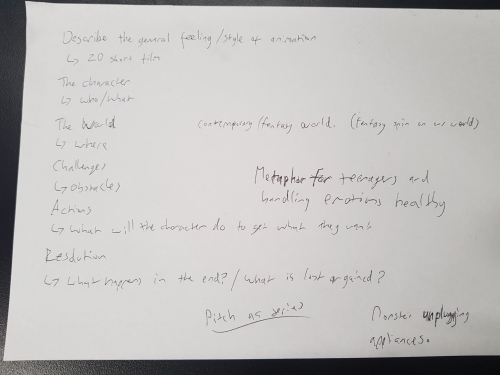 Describe the general feeling/style of animation
↳ 2D short film
The character
↳ who/what
The World
contemporary/fantasy world. (fantasy spin on our world)
↳ where
Challenges
↳ obstacles
Metaphor for teenagers and
handling emotions healthy
Actions
↳ What will the character do to get what they want
Resolution
↳ What happens in the end? / What is lost or gained?
Pitch as series
Monster unplugging
appliances.